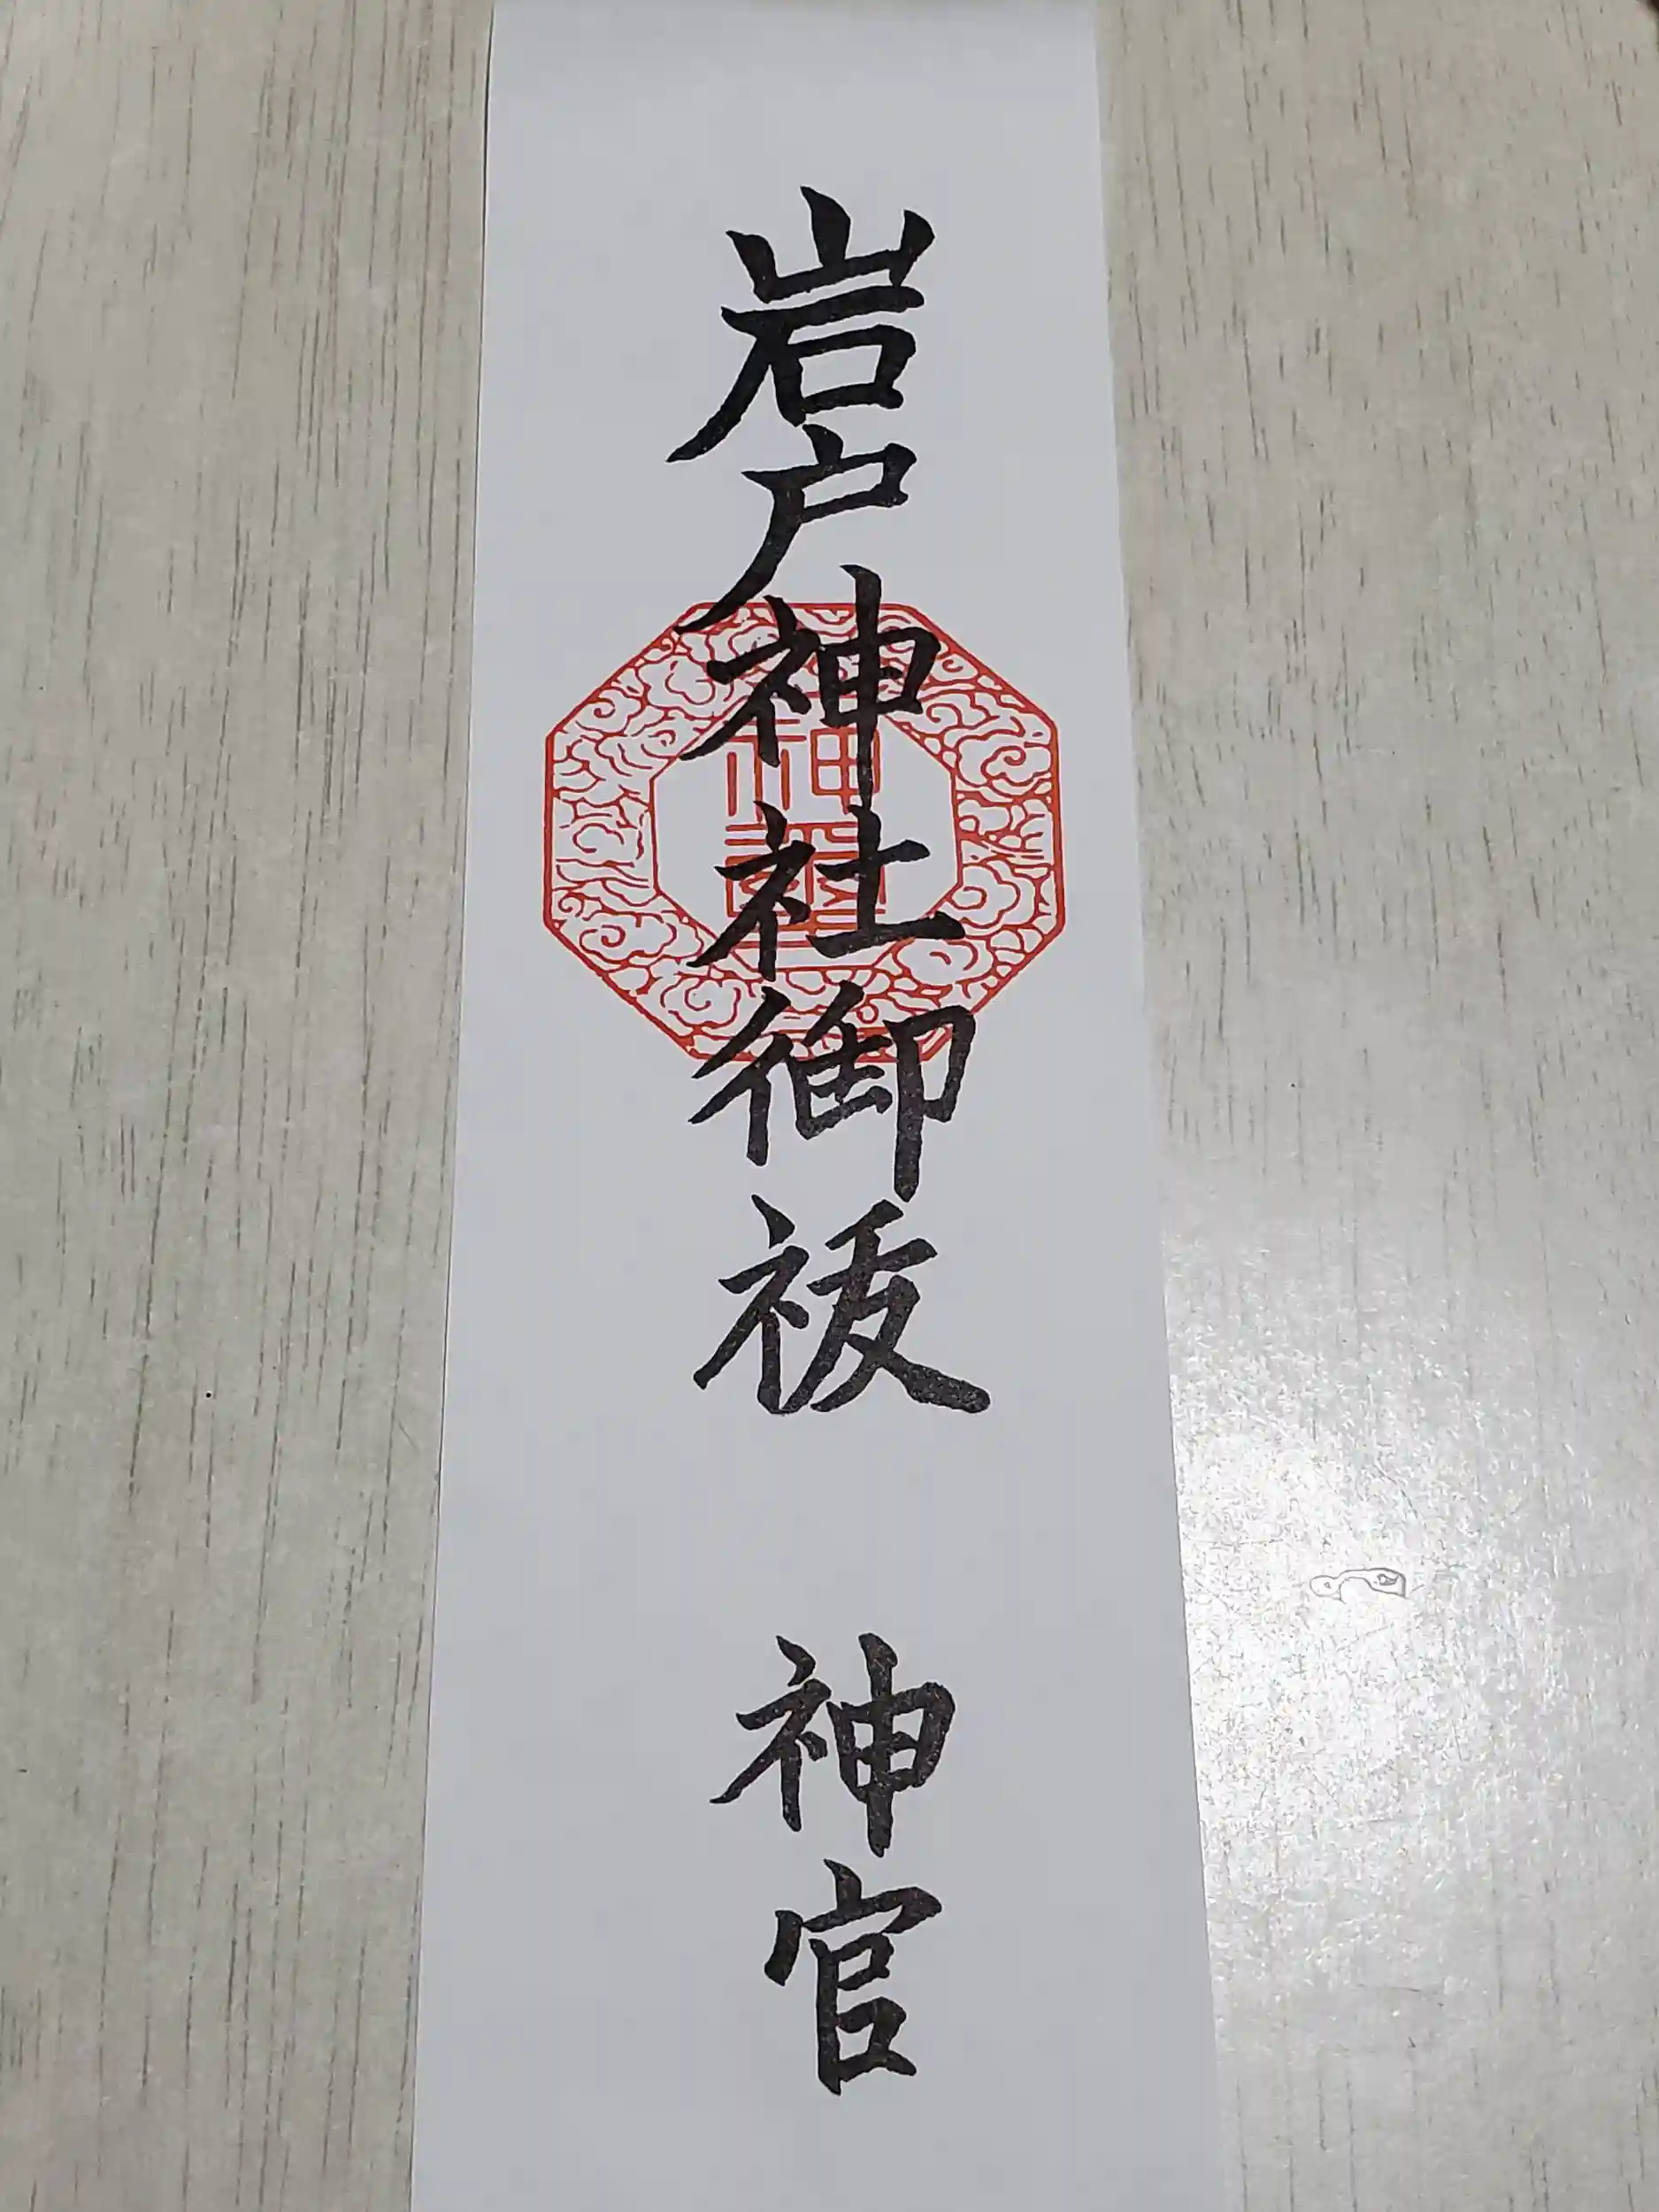 岩戸神社御祓　神官
神璽